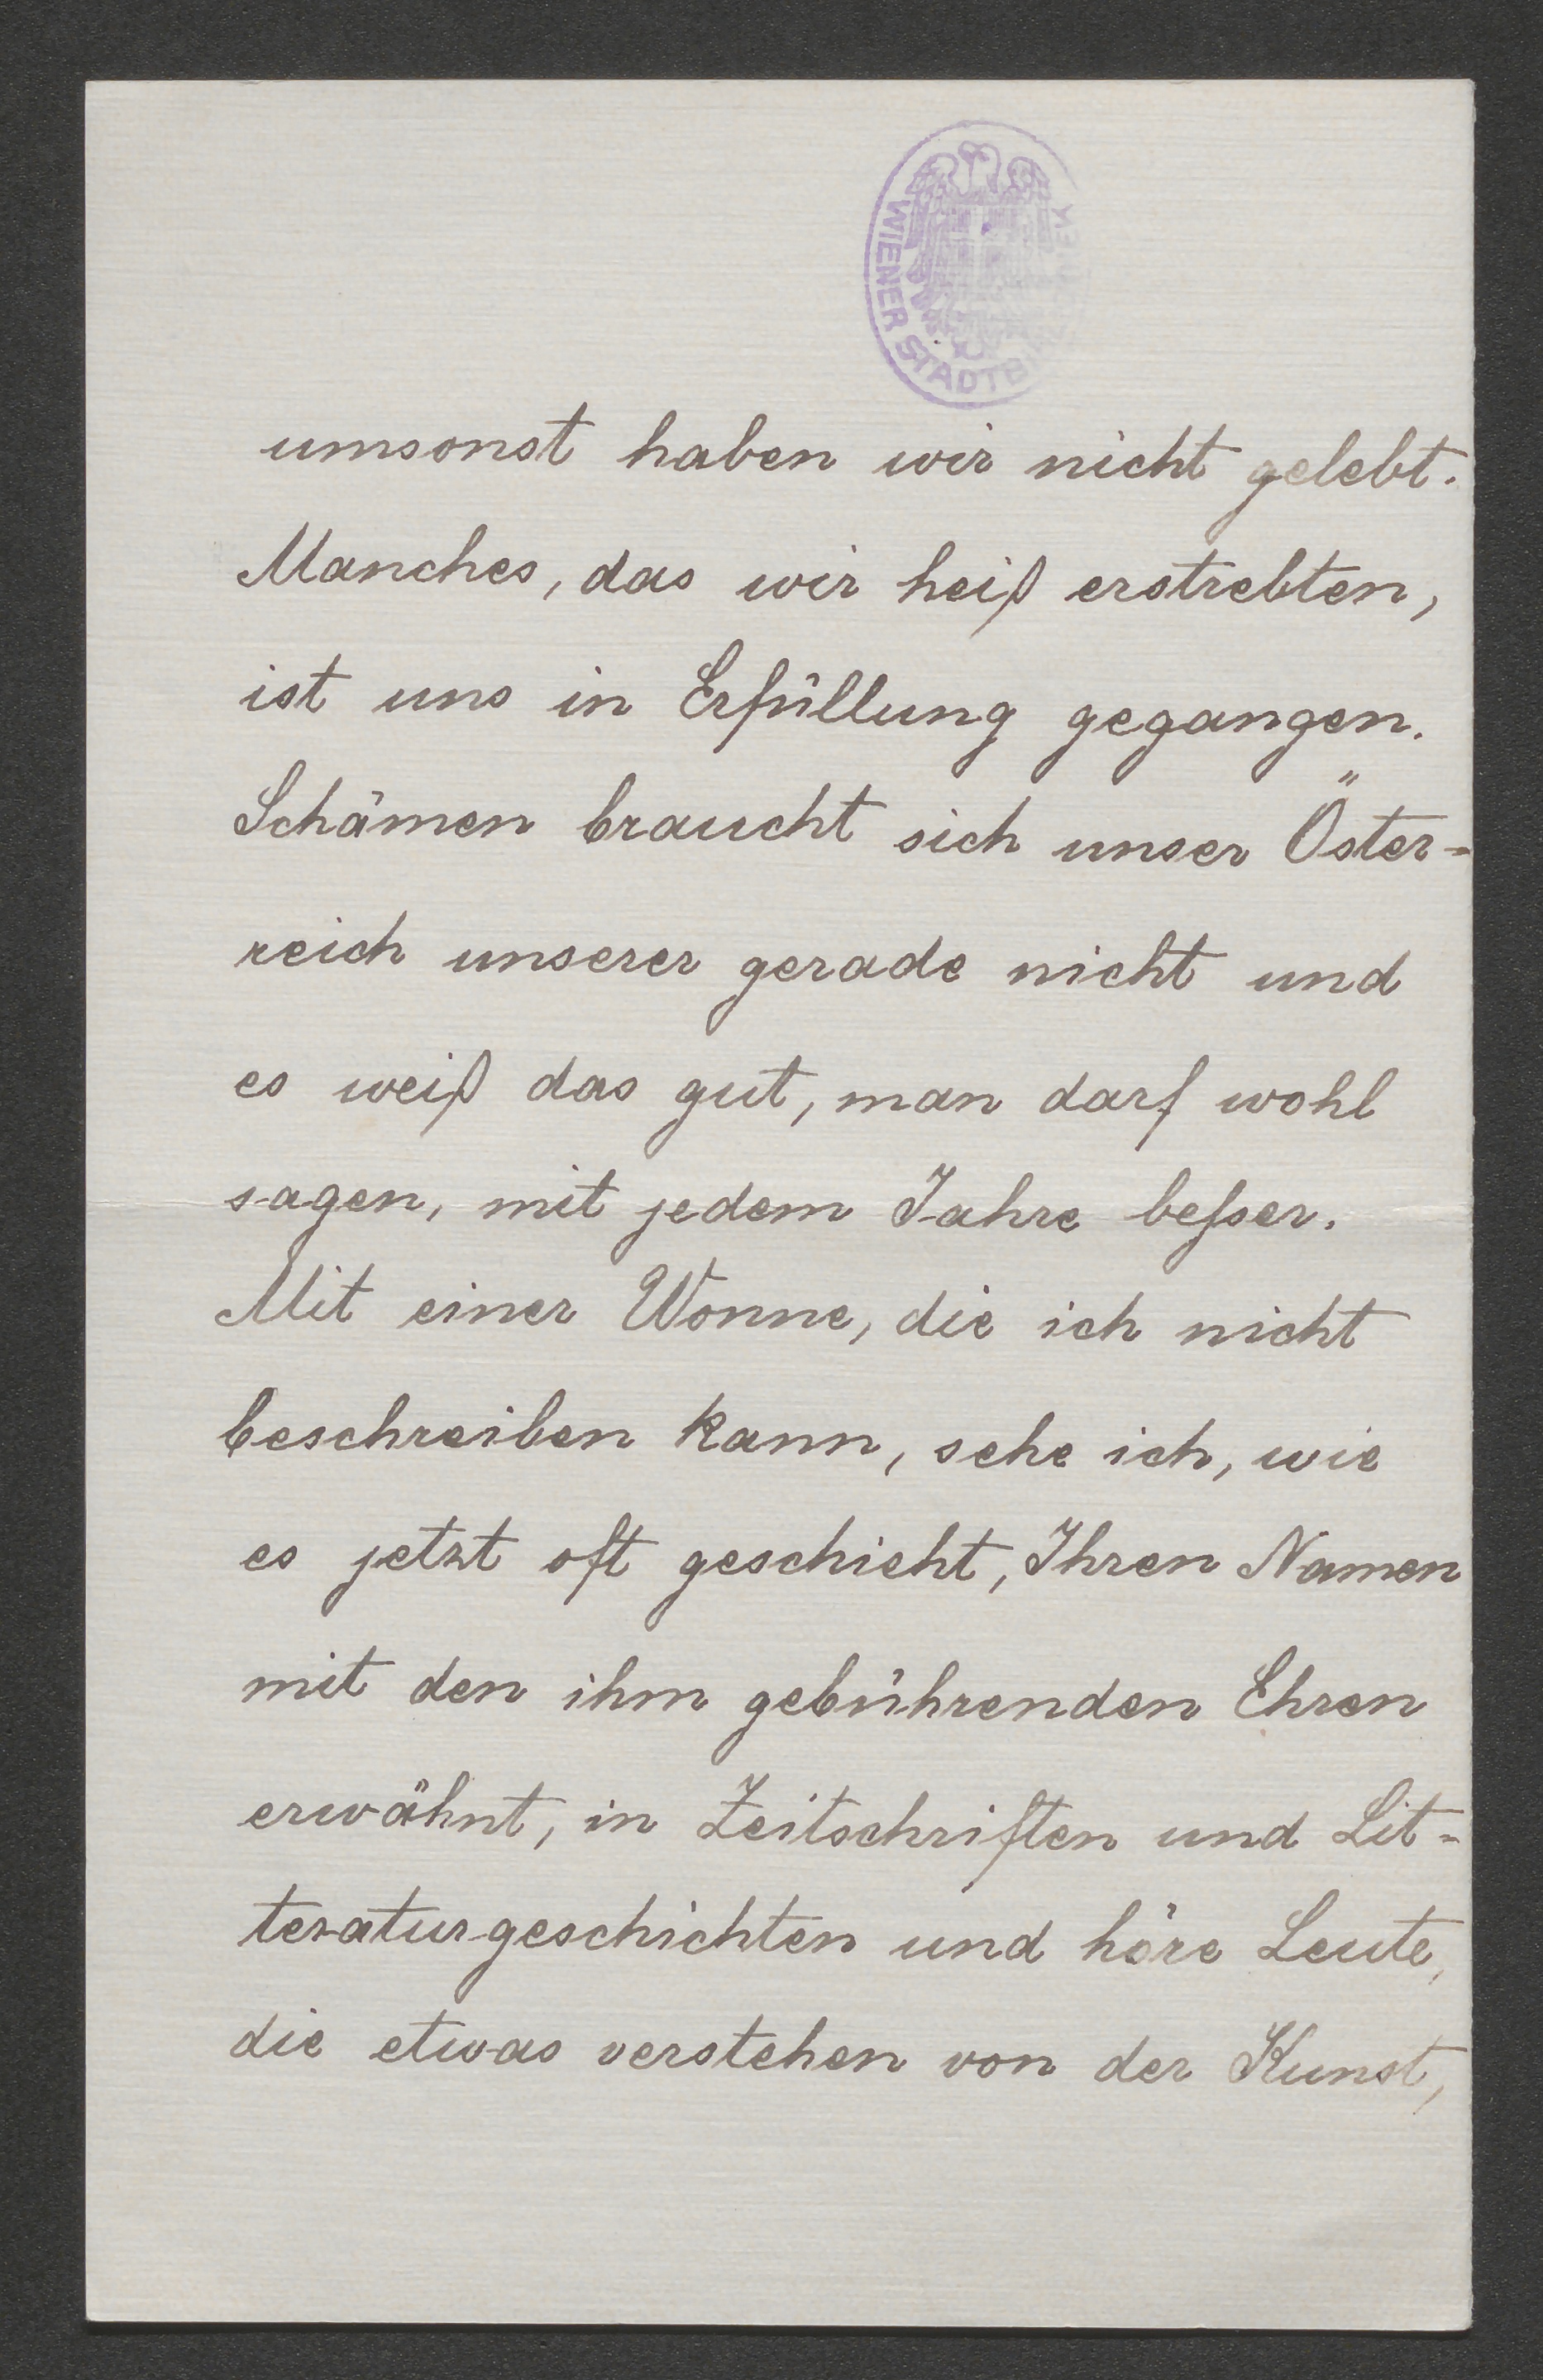 WIENER STADTB
umsonst haben wir nicht gelebt.
Manches, das wir heiß erstrebten,
ist uns in Erfüllung gegangen.
Schämen braucht sich unser Öster=
reich unserer gerade nicht und
es weiß das gut, man darf wohl
sagen, mit jedem Jahre beſser.
Mit einer Wonne, die ich nicht
beschreiben kann, sehe ich, wie
es jetzt oft geschieht, Ihren Namen
mit den ihm gebührenden Ehren
erwähnt, in Zeitschriften und Lit=
teraturgeschichten und höre Leute,
die etwas verstehen von der Kunst,